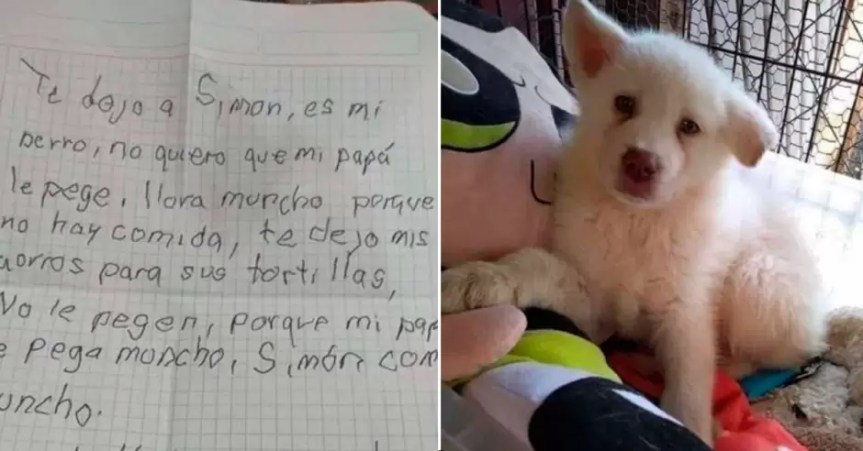 Te dejo a Simon, es mi
perro, no quiero que mi papá
le pege, llora muncho porque
no hay comida, te dejo mis
orros para sus tortillas,
No le pegen, porque mi pap
e pega moncho, Simón com
uncho.